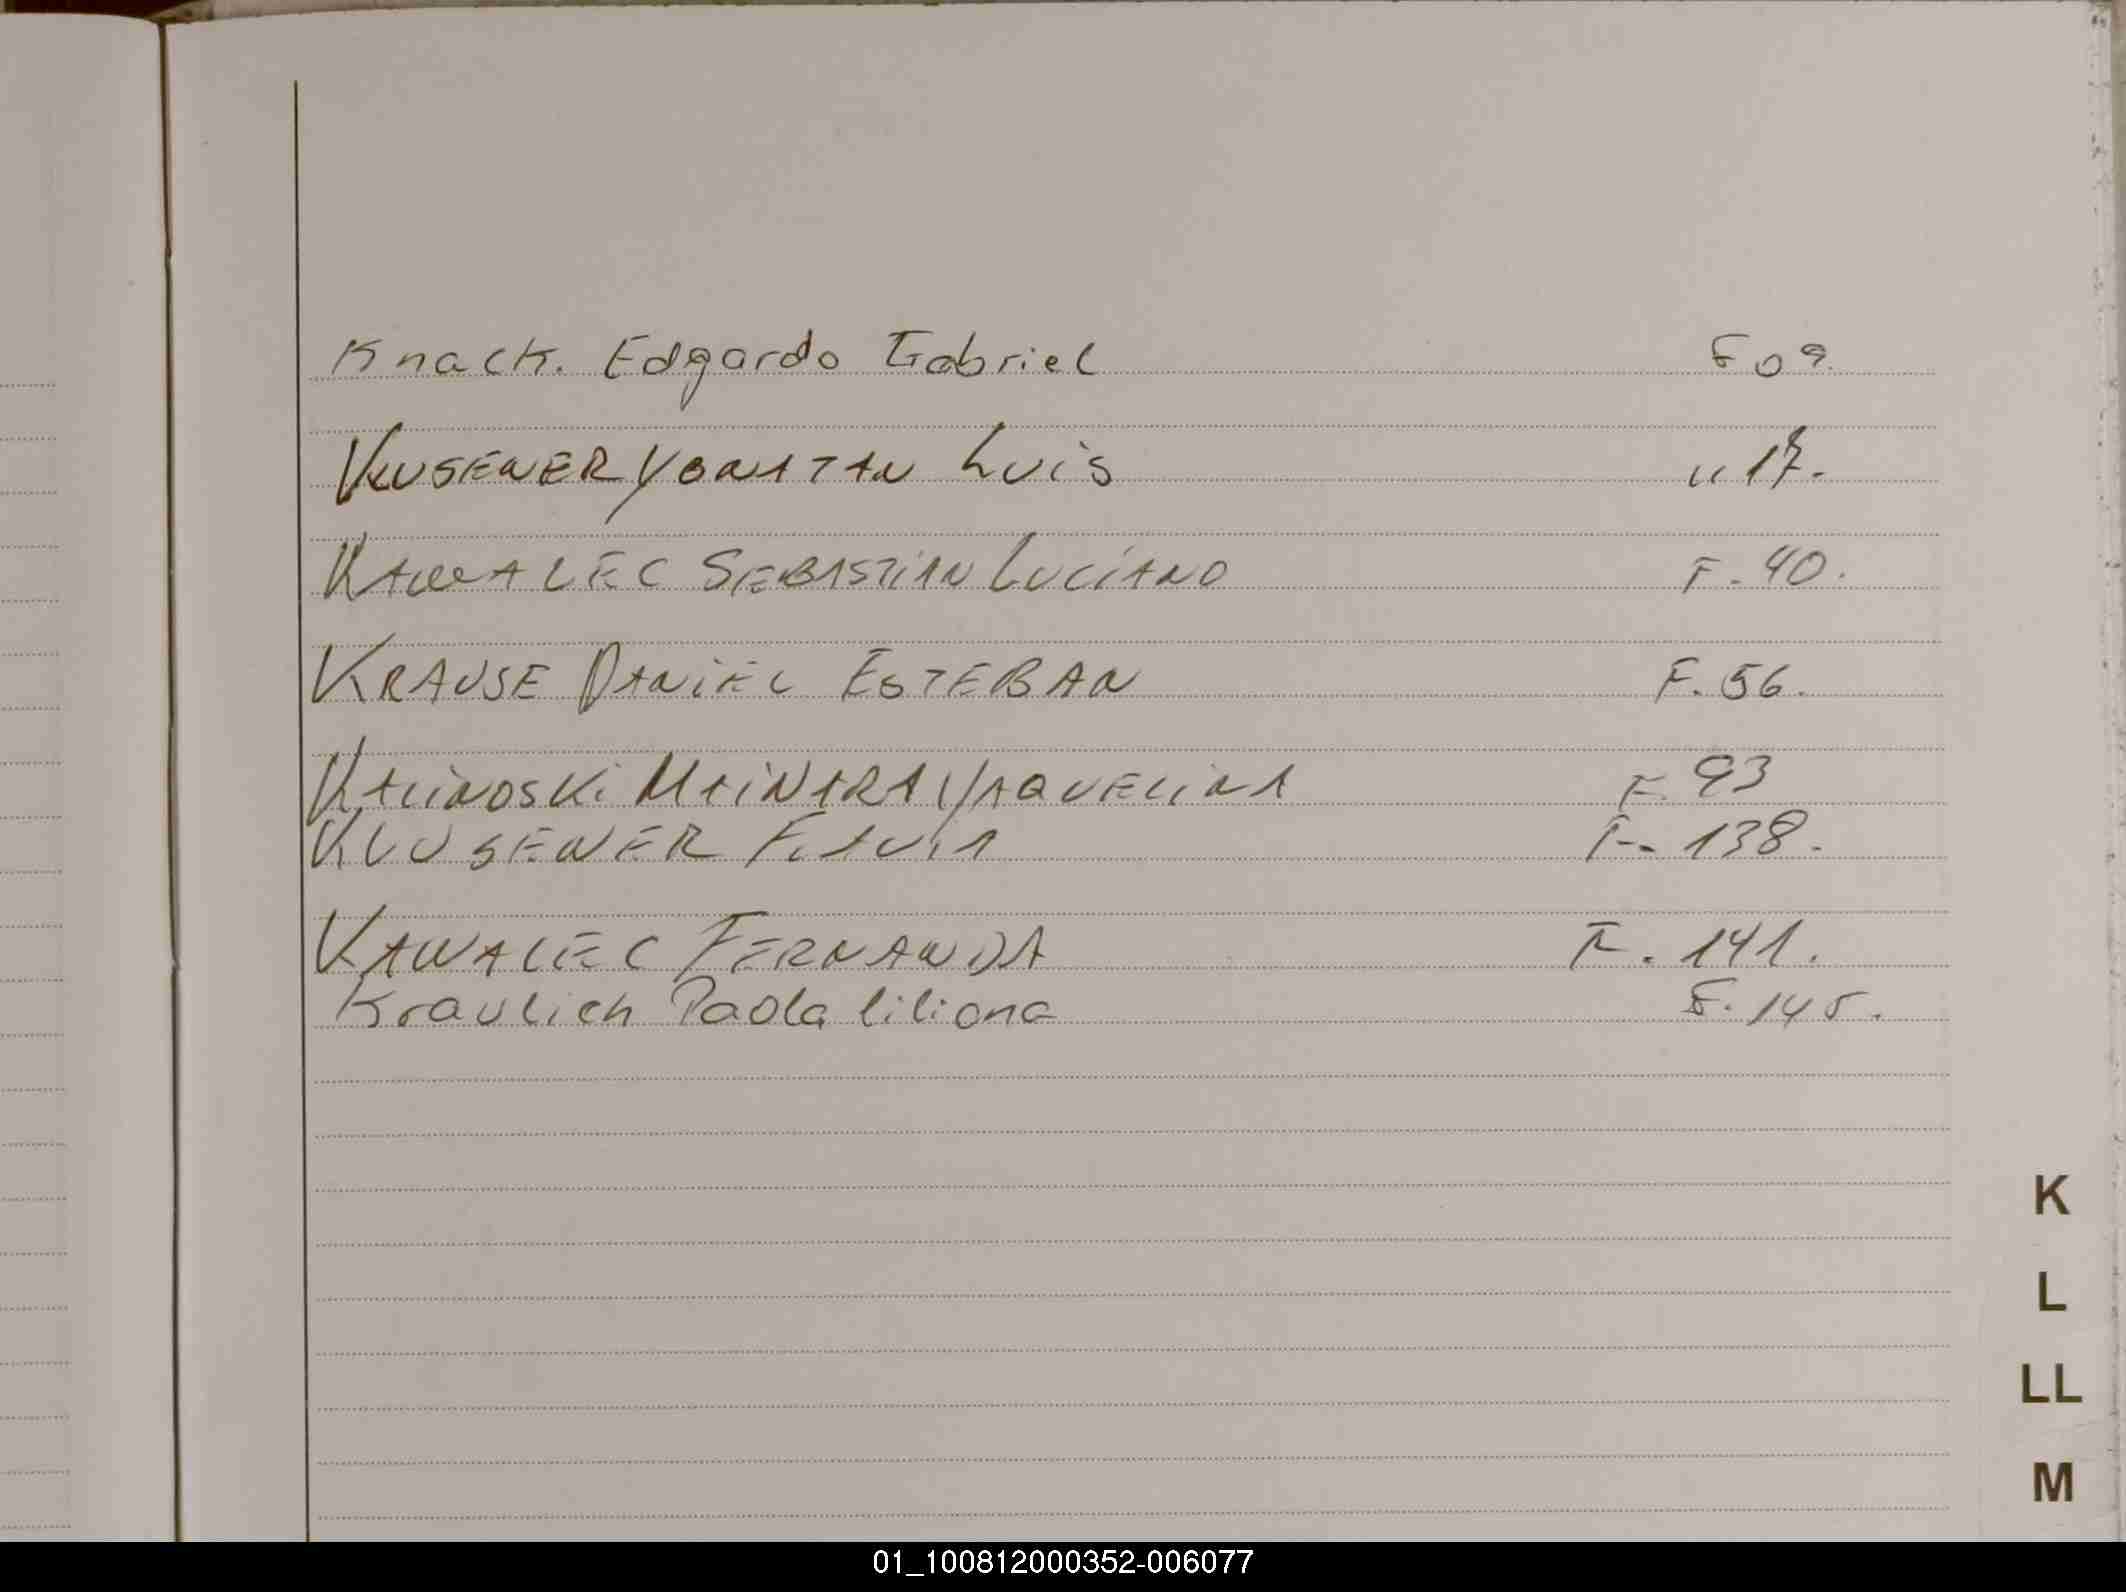 Knack. Edgardo Gabriel F 09.
KLUSENER YONATAN LUIS " 17.
KAWALEC SEBASTIAN LUCIANO F. 40.
KRAUSE DANIEL ESTEBAN F. 56.
KALINOSKI MAINARA YAQUELINA F. 93
KLUSENER FLAVIA F. 138.
KAWALEC FERNANDA F. 141.
Kraulich Paola liliana F. 145.
K
L
LL
M
01_100812000352-006077